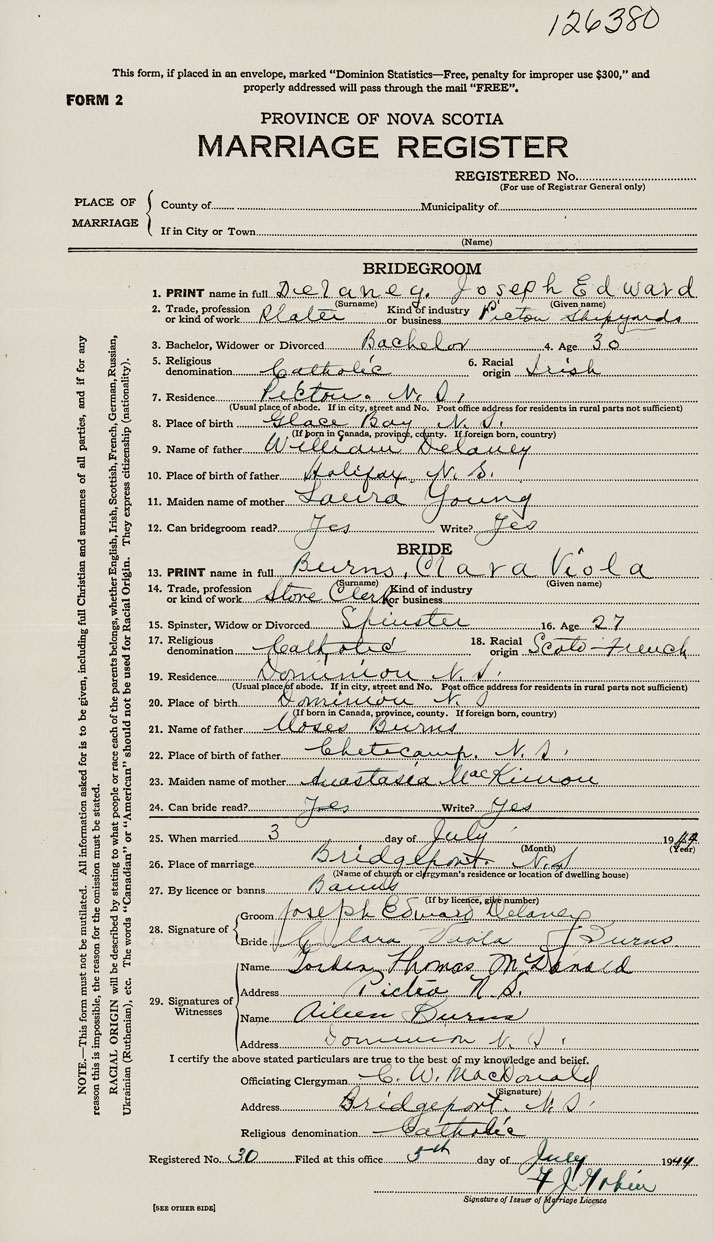 126380
This form, if placed in an envelope, marked “Dominion Statistics—Free, penalty for improper use $300,” and
properly addressed will pass through the mail “FREE”.
FORM 2
PROVINCE OF NOVA SCOTIA
MARRIAGE REGISTER
REGISTERED No.
(For use of Registrar General only)
PLACE OF MARRIAGE
County of Municipality of
If in City or Town
(Name)
BRIDEGROOM
1. PRINT name in full Delaney. Joseph Edward
(Surname) (Given name)
2. Trade, profession or kind of work Plater Kind of industry or business Pictou Shipyards
3. Bachelor, Widower or Divorced Bachelor 4. Age 30
5. Religious denomination Catholic 6. Racial origin Irish
7. Residence Pictou. N. S.
(Usual place of abode. If in city, street and No. Post office address for residents in rural parts not sufficient)
8. Place of birth Glace Bay N. S.
(If born in Canada, province, county. If foreign born, country)
9. Name of father William Delaney
10. Place of birth of father Halifax, N. S.
11. Maiden name of mother Laura Young
12. Can bridegroom read? Yes Write? Yes
BRIDE
13. PRINT name in full Burns, Clara Viola
(Surname) (Given name)
14. Trade, profession or kind of work Store Clerk Kind of industry or business
15. Spinster, Widow or Divorced Spinster 16. Age 27
17. Religious denomination Catholic 18. Racial origin Scoto-French
19. Residence Dominion N. S.
(Usual place of abode. If in city, street and No. Post office address for residents in rural parts not sufficient)
20. Place of birth Dominion N. S
(If born in Canada, province, county. If foreign born, country)
21. Name of father Moses Burns
22. Place of birth of father Chetecamp. N. S.
23. Maiden name of mother Anastasia MacKinnon
24. Can bride read? Yes Write? Yes
25. When married 3 day of July 1944
(Month) (Year)
26. Place of marriage Bridgeport N.S
(Name of church or clergyman's residence or location of dwelling house)
27. By licence or banns Banns
(If by licence, give number)
28. Signature of
Groom Joseph Edward Delaney
Bride Clara Viola Burns
29. Signatures of Witnesses
Name Thomas McDonald
Address Pictou N.S.
Name Aileen Burns
Address Dominion N. S.
I certify the above stated particulars are true to the best of my knowledge and belief.
Officiating Clergyman C. W. MacDonald
(Signature)
Address Bridgeport. N. S.
Religious denomination Catholic
Registered No. 30 Filed at this office 5th day of July 1944
Signature of Issuer of Marriage Licence
[SEE OTHER SIDE]
NOTE.—This form must not be mutilated. All information asked for is to be given, including full Christian and surnames of all parties, and if for any
reason this is impossible, the reason for the omission must be stated.
RACIAL ORIGIN will be described by stating to what people or race each of the parents belongs, whether English, Irish, Scottish, French, German, Russian,
Ukrainian (Ruthenian), etc. The words “Canadian” or “American” should not be used for Racial Origin. They express citizenship (nationality).